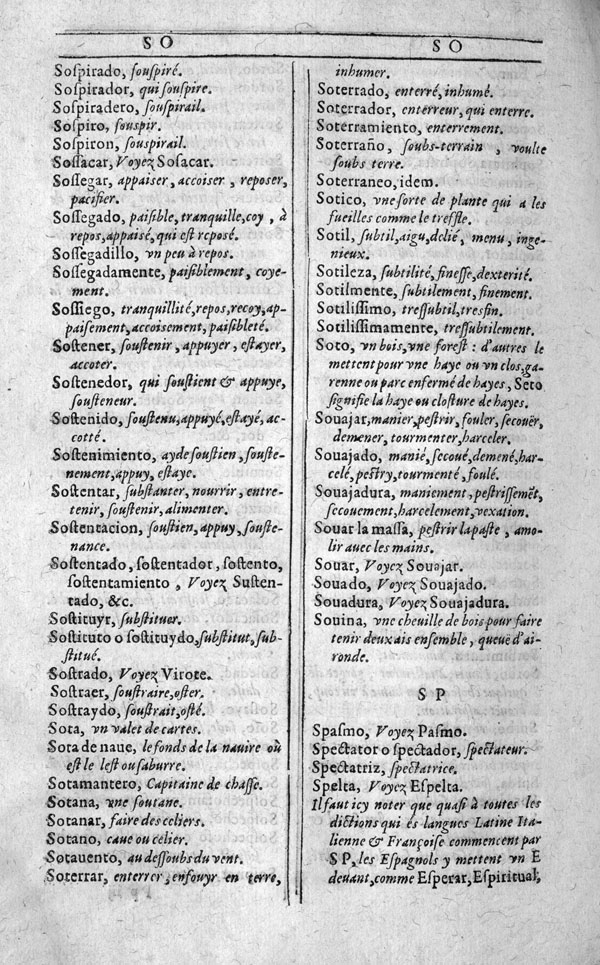 SO
Sospirado, souspiré.
Sospirador, qui souspire.
Sospiradero, souspirail.
Sospiro, souspir.
Sospiron, souspirail.
Sossacar, Voyez Sosacar.
Sossegar, appaiser, accoiser, reposer,
pacifier.
Sossegado, paisible, tranquille, coy, à
repos, appaisé, qui est reposé.
Sossegadillo, vn peu à repos.
Sossegadamente, paisiblement, coye-
ment.
Sossiego, tranquillité, repos, recoy, ap-
paisement, accoisement, paisibleté.
Sostener, soustenir, appuyer, estayer,
accoter.
Sostenedor, qui soustient & appuye,
sousteneur.
Sostenido, soustenu, appuyé, estayé, ac-
cotté.
Sostenimiento, ayde soustien, souste-
nement, appuy, estaye.
Sostentar, substanter, nourrir, entre-
tenir, soustenir, alimenter.
Sostentacion, soustien, appuy, souste-
nance.
Sostentado, sostentador, sostento,
sostentamiento, Voyez Susten-
tado, &c.
Sostituyr, substituer.
Sostituto o sostituydo, substitut, sub-
stitué.
Sostrado, Voyez Virote.
Sostraer, soustraire, oster.
Sostraydo, soustrait, osté.
Sota, vn valet de cartes.
Sota de naue, le fonds de la nauire où
est le lest ou saburre.
Sotamantero, Capitaine de chasse.
Sotana, vne soutane.
Sotanar, faire des celiers.
Sotano, caue ou celier.
Sotauento, au dessoubs du vent.
Soterrar, enterrer, enfouyr en terre,
SO
inhumer.
Soterrado, enterré, inhumé.
Soterrador, enterreur, qui enterre.
Soterramiento, enterrement.
Soterraño, soubs-terrain, voulte
soubs terre.
Soterraneo, idem.
Sotico, vne sorte de plante qui a les
fueilles comme le treffle.
Sotil, subtil, aigu, delié, menu, inge-
nieux.
Sotileza, subtilité, finesse, dexterité.
Sotilmente, subtilement, finement.
Sotilissimo, tressubtil, tresfin.
Sotilissimamente, tressubtilement.
Soto, vn bois, vne forest : d'autres le
mettent pour vne haye ou vn clos, ga-
renne ou parc enfermé de hayes, Seto
signifie la haye ou closture de hayes.
Souajar, manier, pestrir, fouler, secouër,
demener, tourmenter, harceler.
Souajado, manié, secoué, demené, har-
celé, pestry, tourmenté, foulé.
Souajadura, maniement, pestrissemẽt,
secouement, harcelement, vexation.
Souar la massa, pestrir la paste, amo-
lir auec les mains.
Souar, Voyez Souajar.
Souado, Voyez Souajado.
Souadura, Voyez Souajadura.
Souina, vne cheuille de bois pour faire
tenir deux ais ensemble, queue d'ai-
ronde.
SP
Spasmo, Voyez Pasmo.
Spectator o spectador, spectateur.
Spectatriz, spectatrice.
Spelta, Voyez Espelta.
Il faut icy noter que quasi à toutes les
dictions qui és langues Latine Ita-
lienne & Françoise commencent par
SP, les Espagnols y mettent vn E
deuant, comme Esperar, Espiritual,